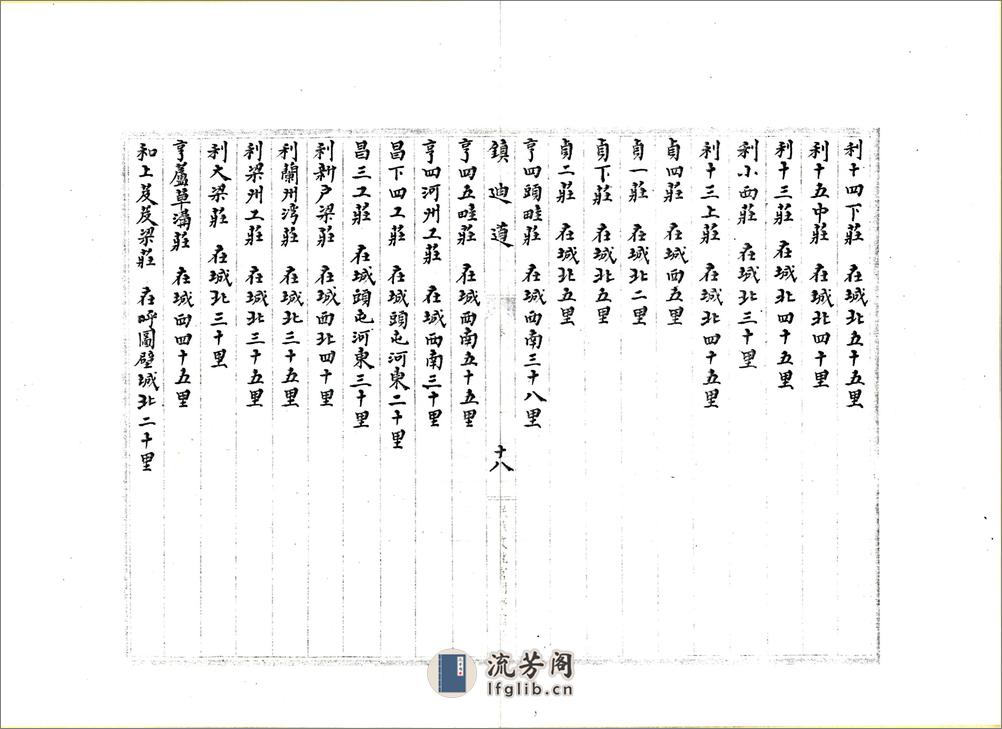 利十四下莊　在城北五十五里
利十五中莊　在城北四十里
利十三莊　在城北四十五里
利小西莊　在城北三十里
利十三上莊　在城北四十五里
貞四莊　在城西五里
貞一莊　在城北二里
貞下莊　在城北五里
貞二莊　在城北五里
亨四頭畦莊　在城西南三十八里
鎮迪道　十八
亨四五畦莊　在城西南五十五里
亨四河州工莊　在城西南三十里
昌下四工莊　在城頭屯河東二十里
昌三工莊　在城頭屯河東三十里
利新户梁莊　在城西北四十里
利蘭州湾莊　在城北三十五里
利梁州工莊　在城北三十五里
利大梁莊　在城北三十里
亨蘆草溝莊　在城西四十五里
和上芨芨梁莊　在呼圖壁城北二十里
流芳阁
lfglib.cn